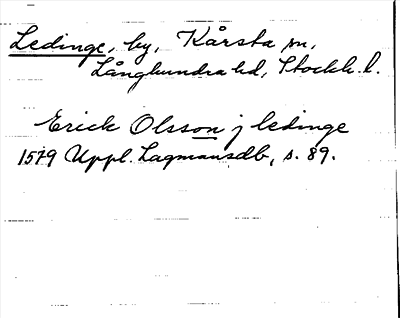 Ledinge, by, Kårsta sn,
Långhundra hd, Stockh. l.
Erick Olsson j ledinge
1579 Uppl. Lagmansdb, s. 89.